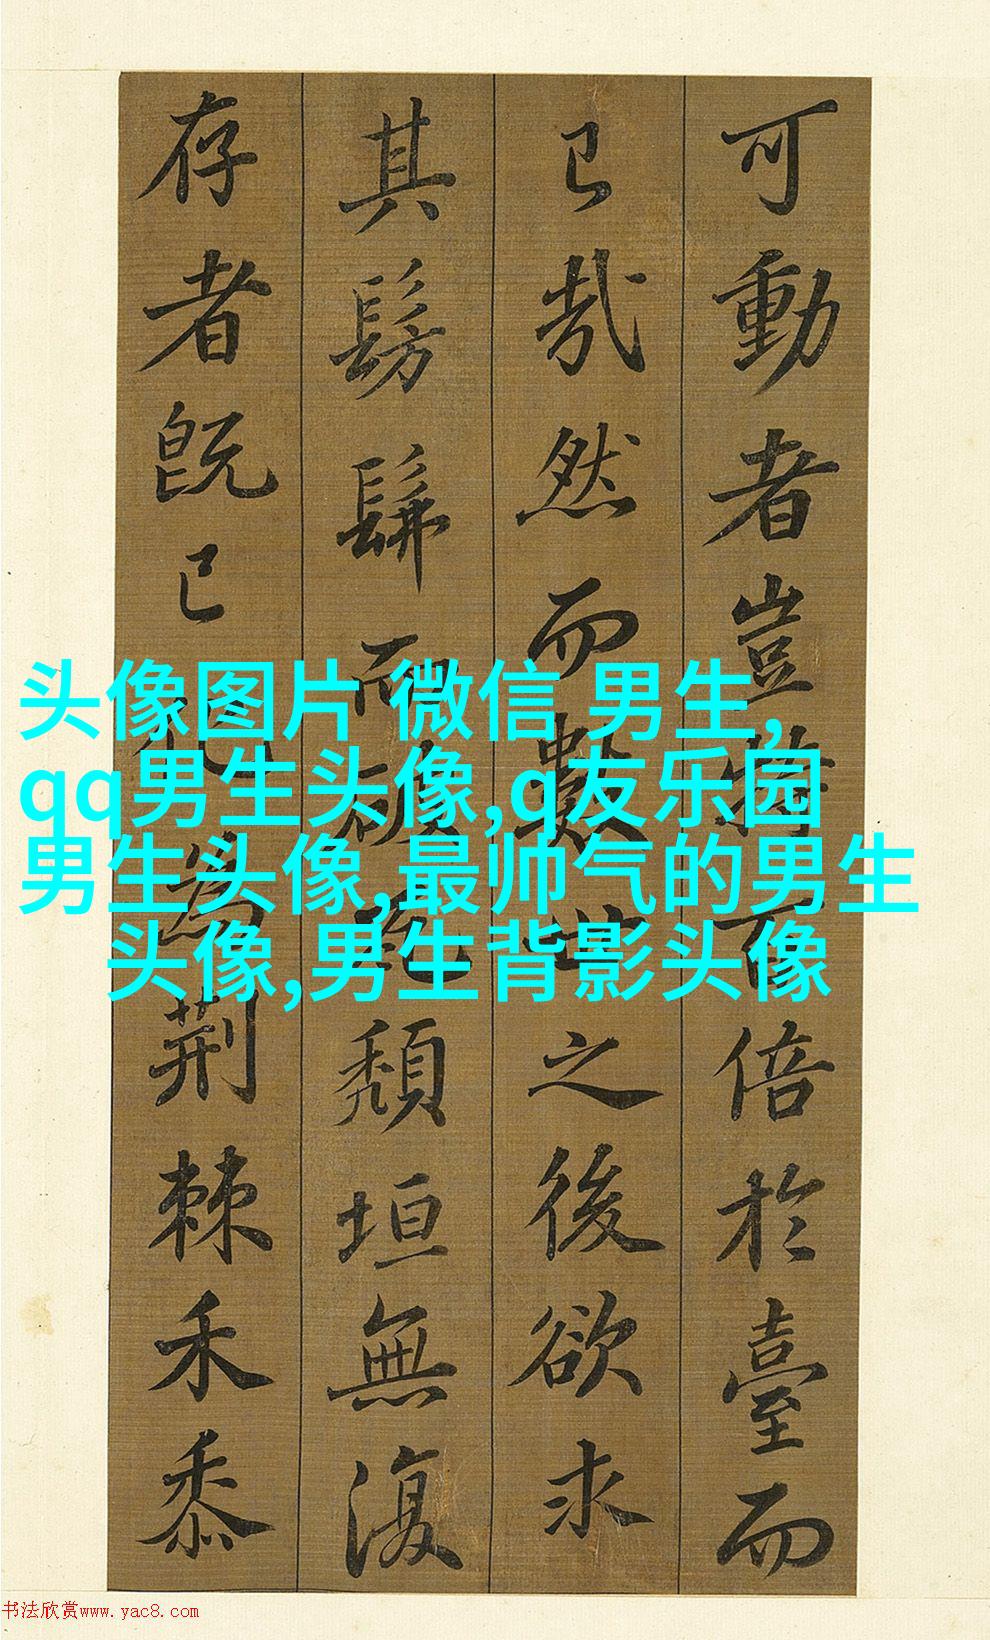 可動者豈特百倍於臺而
已哉然而數世之後欲求
其髣髴而破瓦頹垣無復
存者既已化為荊棘禾黍
头像图片 微信 男生,
qq男生头像,q友乐园
男生头像,最帅气的男生
头像,男生背影头像
书法欣赏www.yac8.com